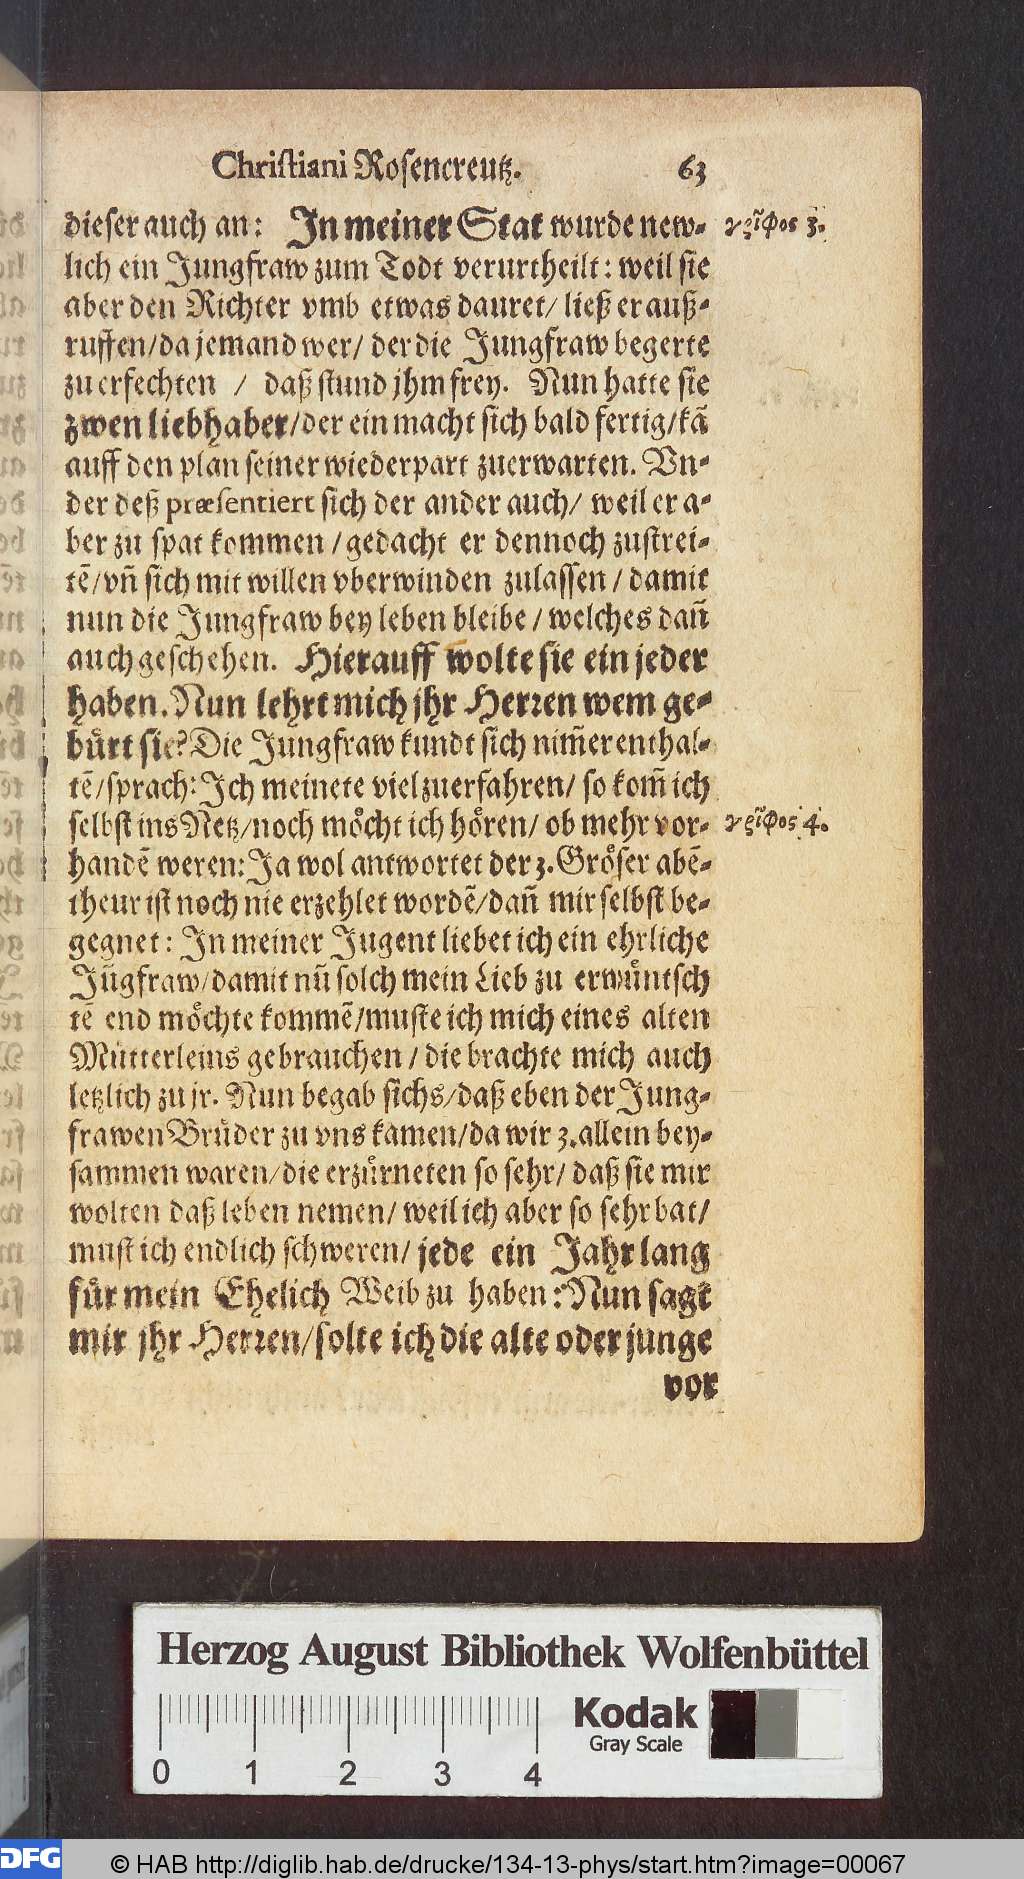 Christiani Rosencreutz. 63
dieser auch an: In meiner Stat wurde new-
γρῖφος 3.
lich ein Jungfraw zum Todt verurtheilt: weil sie
aber den Richter vmb etwas dauret/ ließ er auß-
ruffen/da jemand wer/ der die Jungfraw begerte
zu erfechten / daß stund jhm frey. Nun hatte sie
zwen liebhaber/der ein macht sich bald fertig/kã
auff den plan seiner wiederpart zuerwarten. Vn-
der deß præsentiert sich der ander auch/ weil er a-
ber zu spat kommen /gedacht er dennoch zustrei-
tẽ/vñ sich mit willen vberwinden zulassen / damit
nun die Jungfraw bey leben bleibe / welches dañ
auch geschehen. Hierauff wolte sie ein jeder
haben. Nun lehrt mich jhr Herren wem ge-
bůrt sie? Die Jungfraw kundt sich nim̃er enthal-
tẽ/sprach: Ich meinete viel zuerfahren/ so kom̃ ich
selbst ins Netz/noch mo̊cht ich ho̊ren/ ob mehr vor-
γρῖφος 4.
handẽ weren: Ja wol antwortet der 3. Gro̊ser abẽ-
theur ist noch nie erzehlet wordẽ/dañ mir selbst be-
gegnet: In meiner Jugent liebet ich ein ehrliche
Jũgfraw/damit nũ solch mein Lieb zu erwůntsch
tẽ end mo̊chte kommẽ/muste ich mich eines alten
Můtterleins gebrauchen / die brachte mich auch
letzlich zu jr. Nun begab sichs/daß eben der Jung-
frawen Brůder zu vns kamen/da wir 3. allein bey-
sammen waren/die erzůrneten so sehr/ daß sie mir
wolten daß leben nemen/ weil ich aber so sehr bat/
must ich endlich schweren/ jede ein Jahr lang
fůr mein Ehelich Weib zu haben: Nun sagt
mir jhr Herren/solte ich die alte oder junge
vor
Herzog August Bibliothek Wolfenbüttel
Kodak
Gray Scale
0 1 2 3 4
DFG
© HAB http://diglib.hab.de/drucke/134-13-phys/start.htm?image=00067